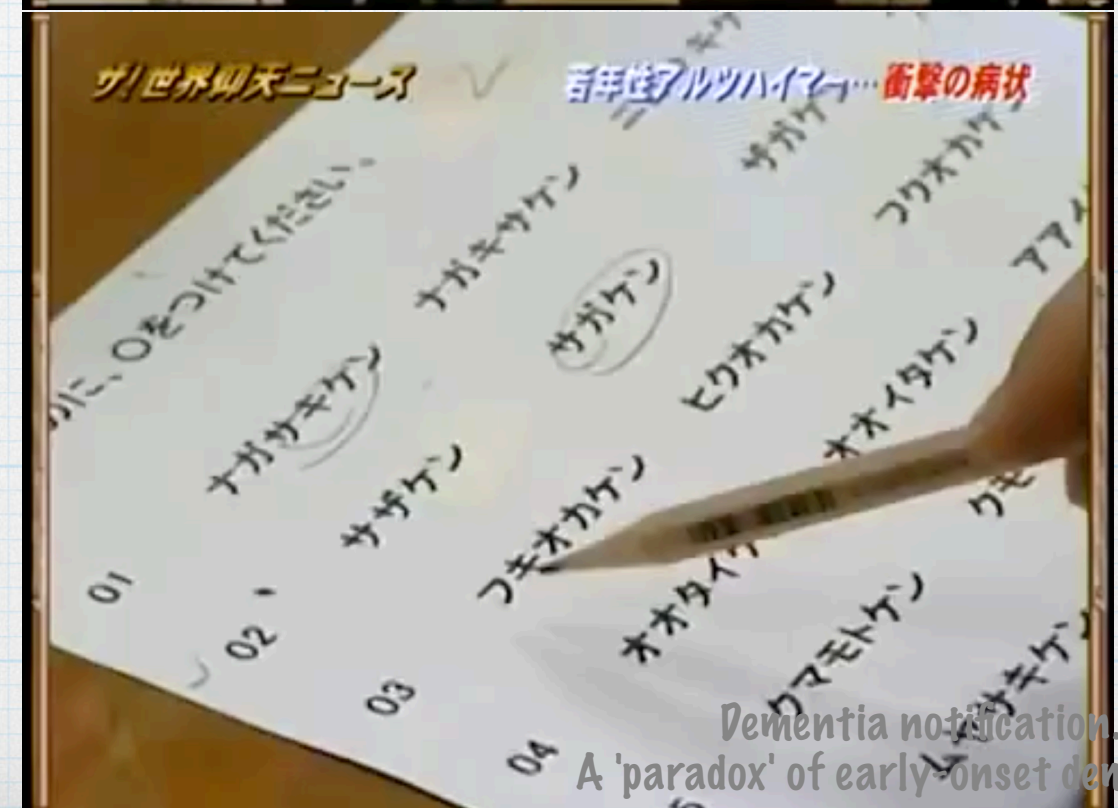 ザ!世界仰天ニュース
若年性アルツハイマー…衝撃の病状
に、○をつけてください。
01 ナガサキケン ナガキサケン
02 サザケン サガケン サガケ
03 フキオカケン ヒクオカケン フクオカケン
04 オオタイケ オオイタケン アアイ
クマモトケン クモ
Dementia notification.
A 'paradox' of early-onset de